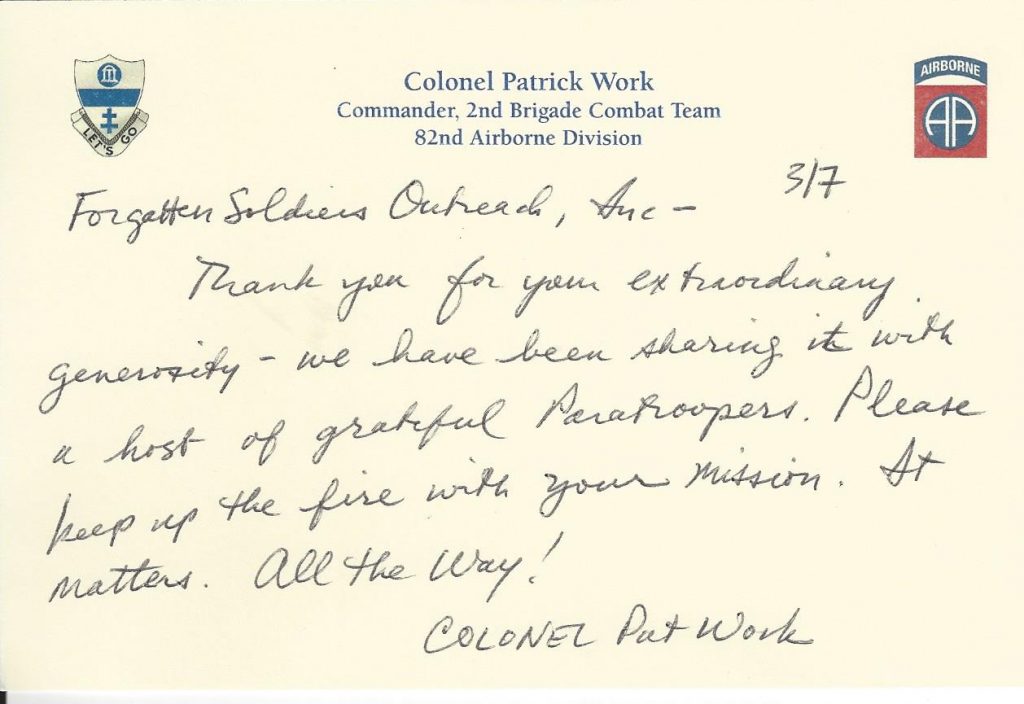 Colonel Patrick Work
Commander, 2nd Brigade Combat Team
82nd Airborne Division
LET'S GO
AIRBORNE
AA
3/7
Forgotten Soldiers Outreach, Inc –
Thank you for your extraordinary
generosity – we have been sharing it with
a host of grateful Paratroopers. Please
keep up the fire with your mission. It
matters. All the Way!
COLONEL Pat Work